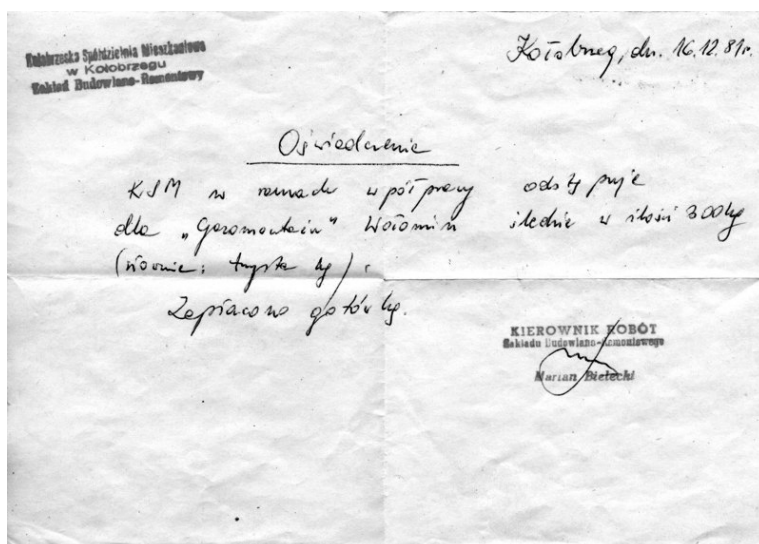 Kołobrzeska Spółdzielnia Mieszkaniowa
w Kołobrzegu
Zakład Budowlano-Remontowy
Kołobrzeg, dn. 16.12.81r.
Oświadczenie
KSM w ramach współpracy odstępuje
dla „Gazomontażu" Wołomin śledzie w ilości 300 kg
(słownie: trzysta kg).
Zapłacono gotówką.
KIEROWNIK ROBÓT
Zakładu Budowlano-Remontowego
Marian Bielecki